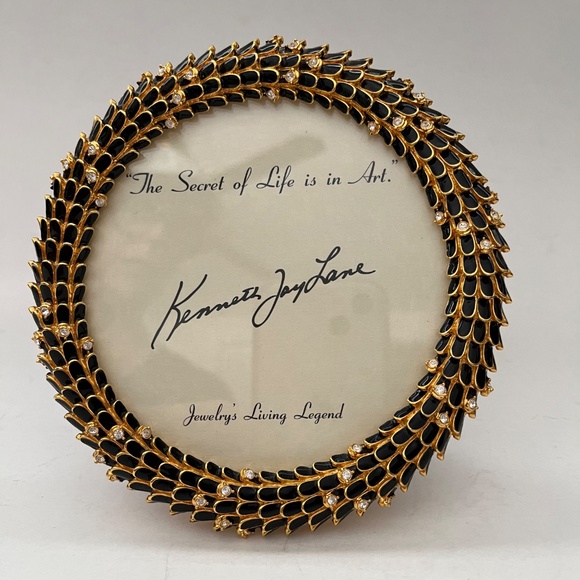 "The Secret of Life is in Art."
Kenneth Jay Lane
Jewelry's Living Legend